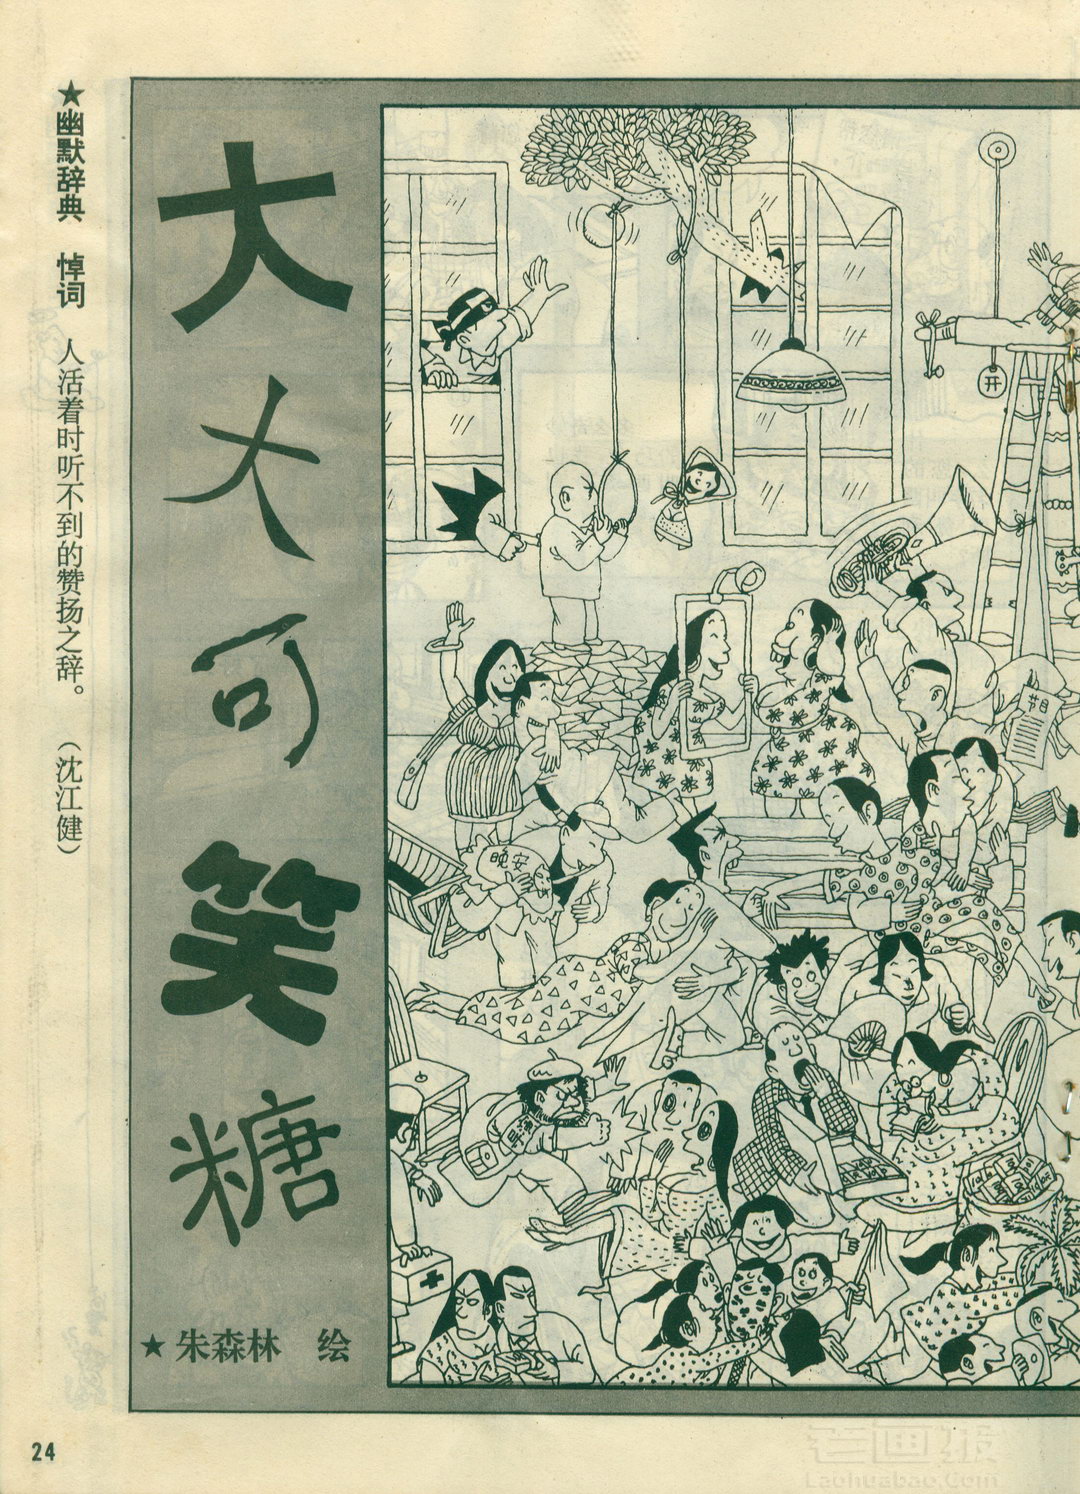 ★幽默辞典 悼词 人活着时听不到的赞扬之辞。 （沈江健）
大大可笑糖
★朱森林 绘
开
节目
晚安
24
老画报
Laohuabao.Com